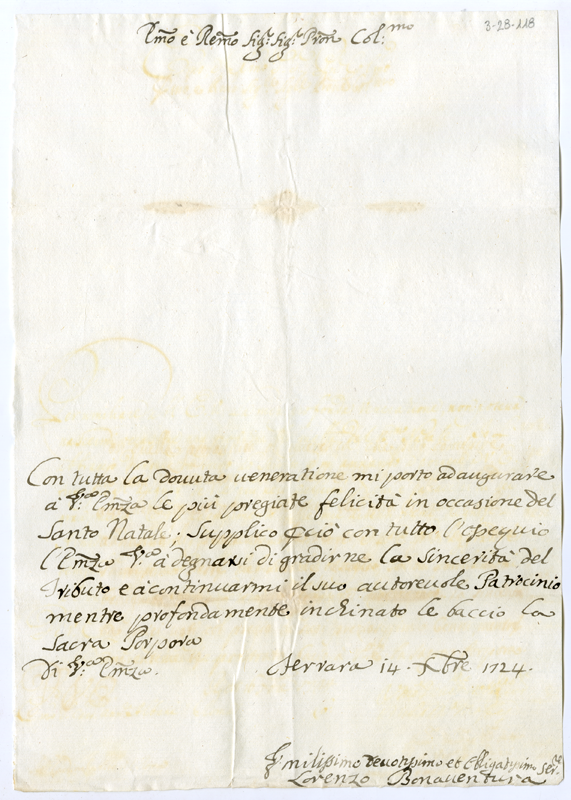 3-28-118
Emo è Remo Sig:r Sig:r Pron Col:mo
Con tutta la douuta ueneratione mi porto ad augurare
à V:ra Emza le più pregiate felicità in occasione del
Santo Natale; Supplico pciò con tutto l'osequio
l'Emza V:ra à degnarsi di gradirne la sincerità del
Tributo e à continuarmi il suo autoreuole Patrocinio
mentre profondamente inchinato le baccio la
Sacra Porpora
Di V:ra Emza. Ferrara 14. Xbre 1724.
Humilissimo Deuotissimo et Obligatissimo Ser:re
Lorenzo Bonauentura